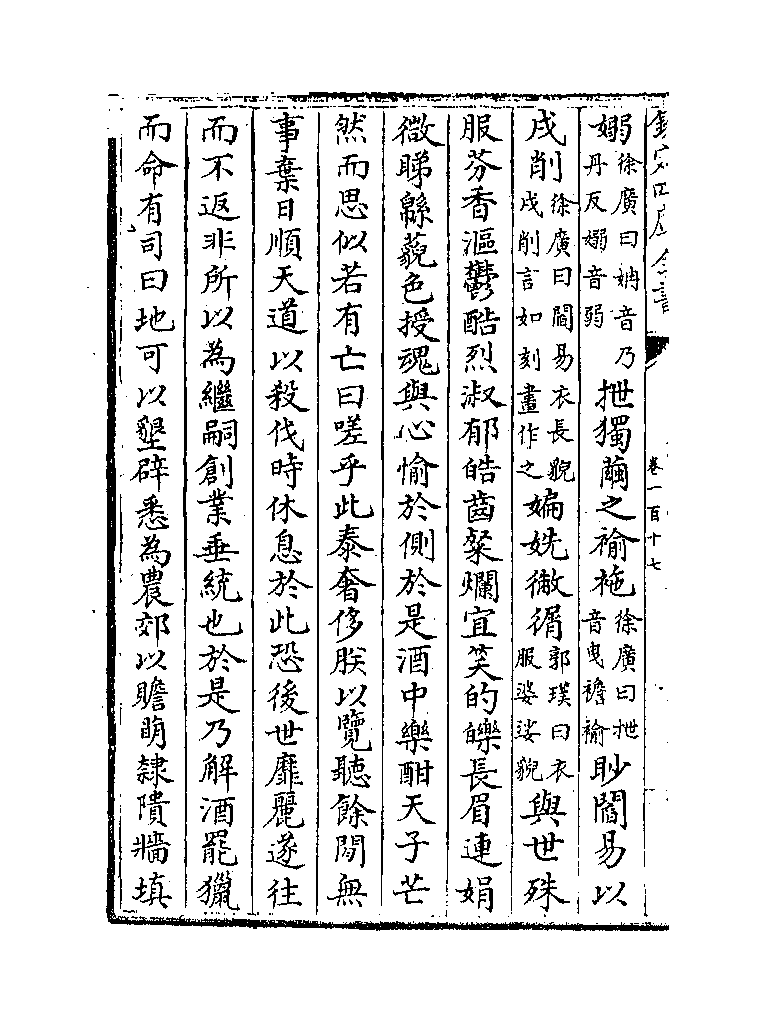 欽定四庫全書
卷一百十七
嫋徐廣曰姌音乃丹反嫋音弱抴獨繭之褕袘徐廣曰抴音曳襜褕眇閻易以
戌削徐廣曰閻易衣長貌戌削言如刻畫作之媥姺徶㣯郭璞曰衣服婆娑貌與世殊
服芬香漚鬱酷烈淑郁皓齒粲爛宜笑的皪長眉連娟
微睇緜藐色授魂與心愉於側於是酒中樂酣天子芒
然而思似若有亡曰嗟乎此泰奢侈朕以覽聽餘閒無
事棄日順天道以殺伐時休息於此恐後世靡麗遂往
而不返非所以為繼嗣創業垂統也於是乃解酒罷獵
而命有司曰地可以墾辟悉為農郊以贍萌隸隤牆填